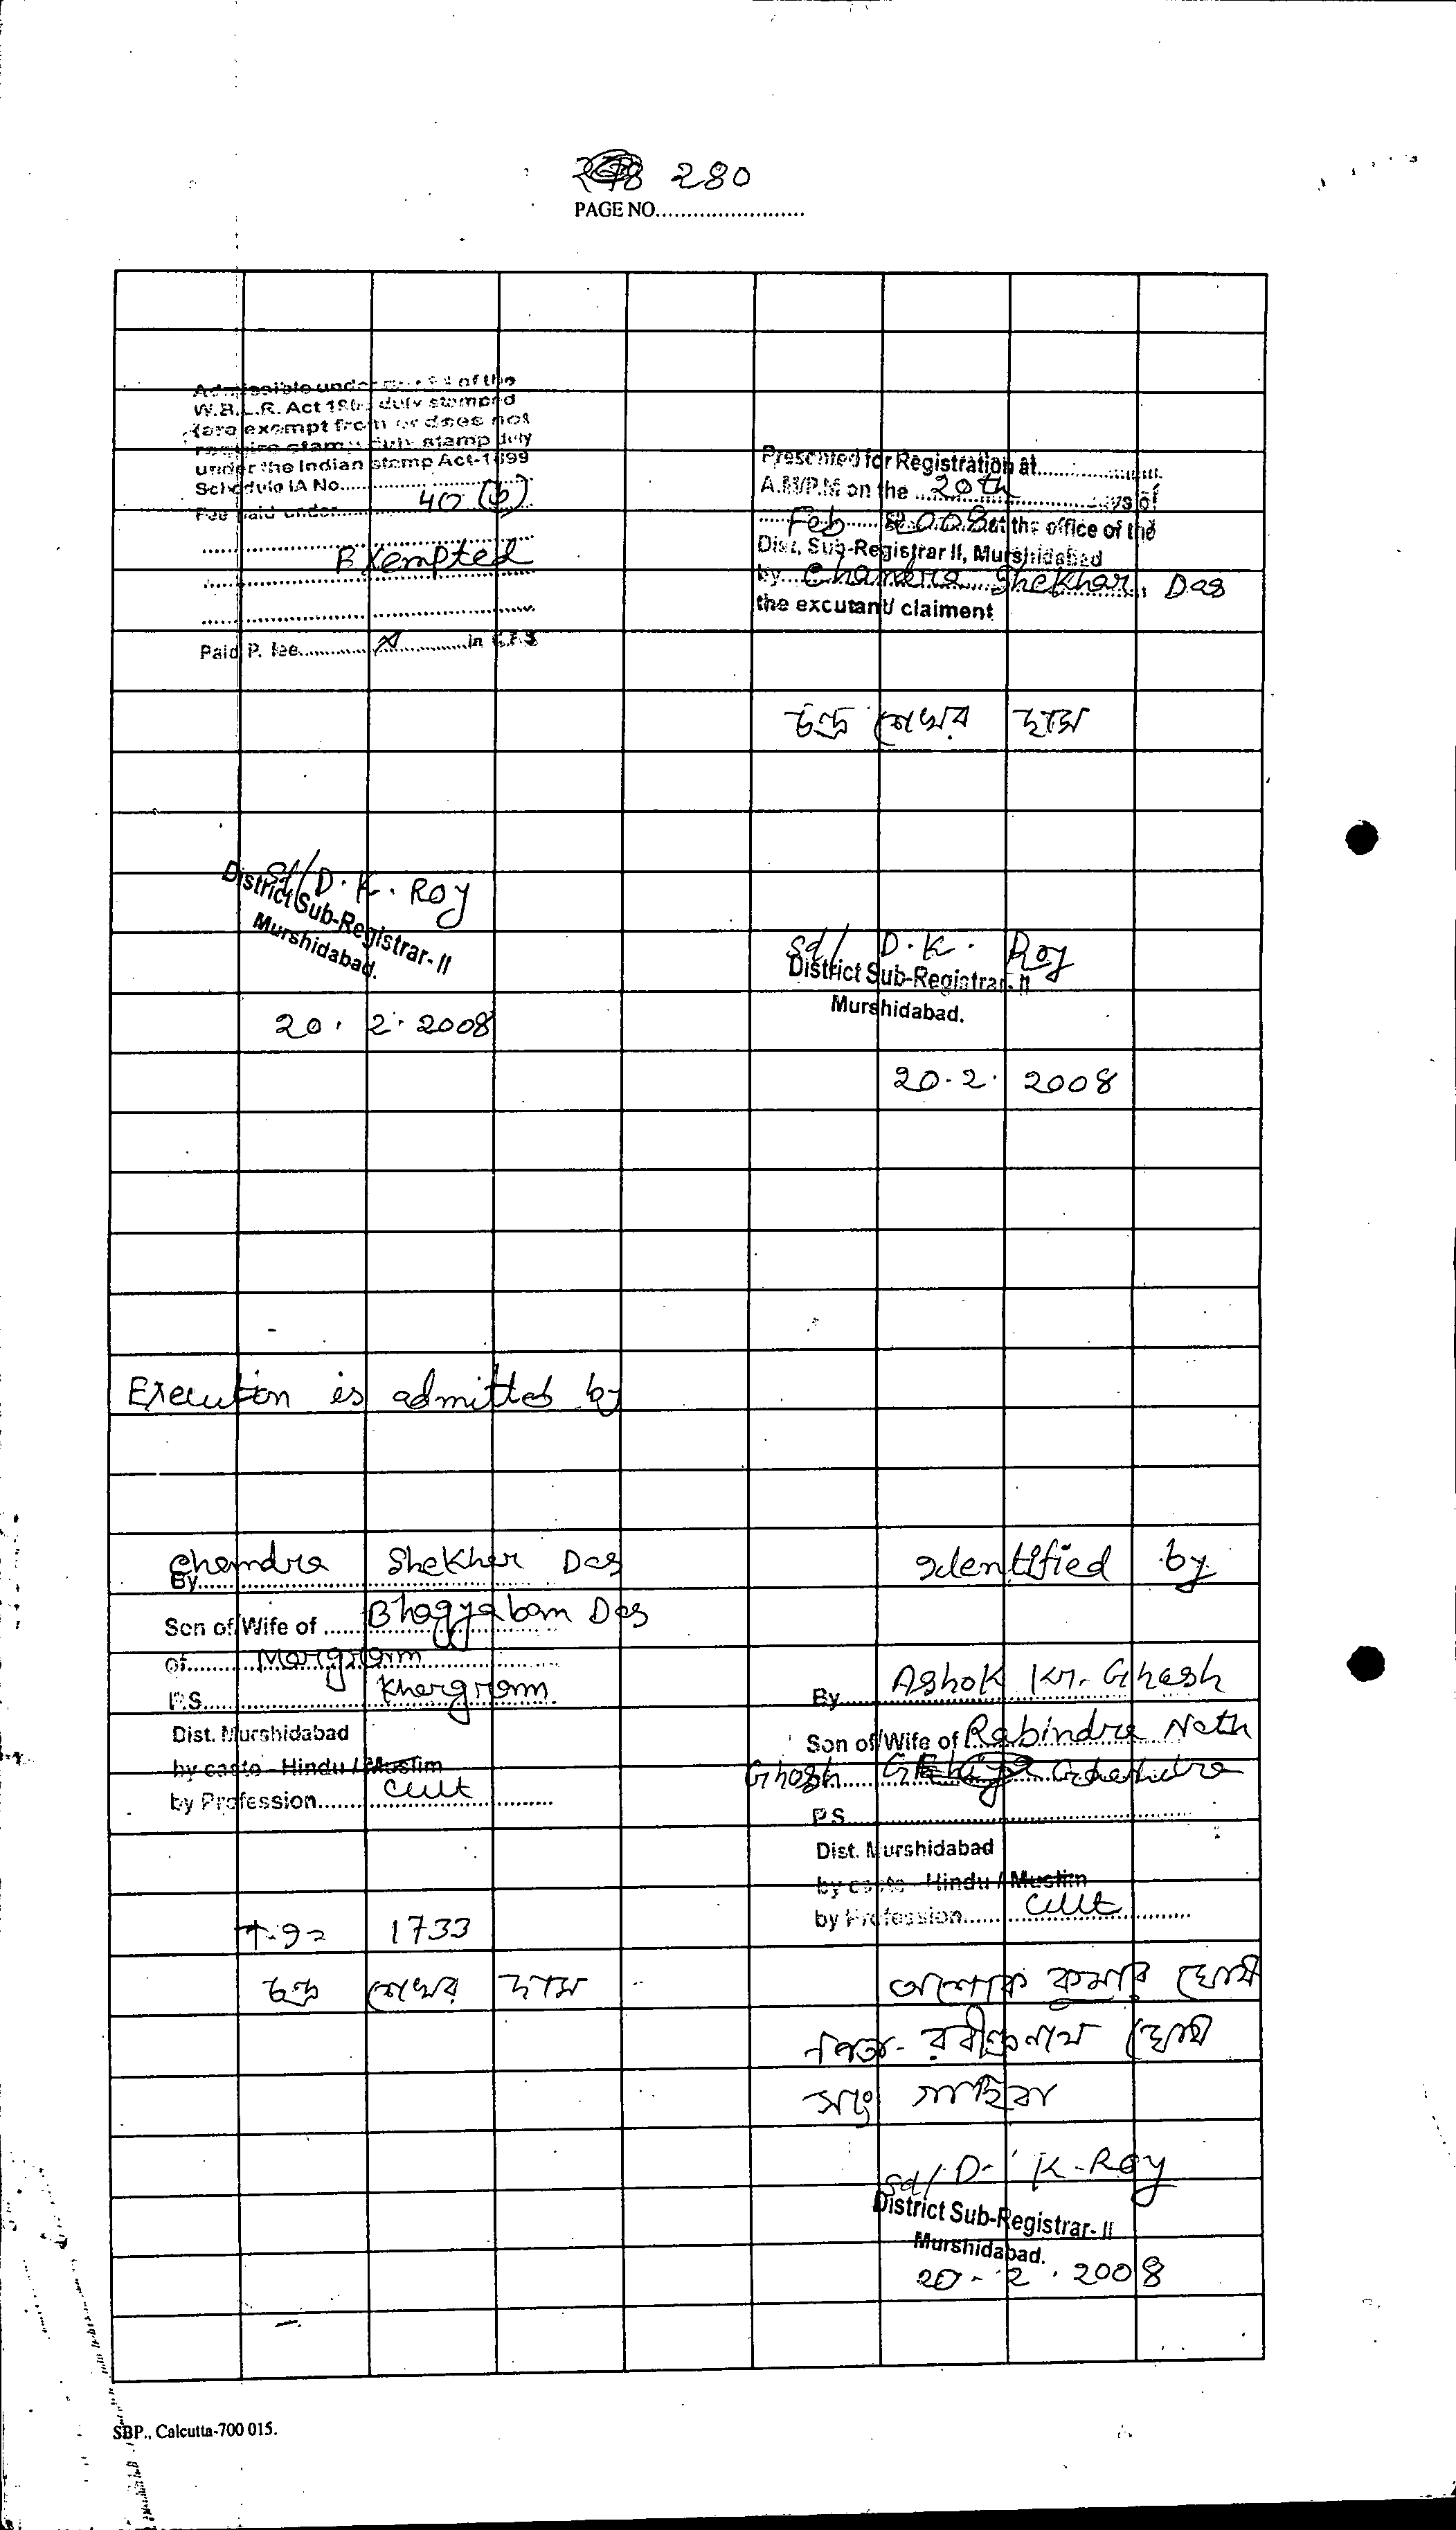 280
PAGE NO
Admissible under of the
W.B.L.R. Act duly stamped
(are exempt from or does not
require stamp duly stamp duty
under the Indian stamp Act-1899
Schedule IA No. 40 (b)
Fee paid under
Exempted
Paid P. fee in
Presented for Registration at
A.M/P.M on the 20th days of
Feb 2008 at the office of the
Dist. Sub-Registrar II, Murshidabad
by Chandra Shekhar Das
the excutant/ claiment
চন্দ্র শেখর দাস
Sd/ D. K. Roy
District Sub-Registrar- II
Murshidabad.
20. 2. 2008
Sd/ D. K. Roy
District Sub-Registrar- II
Murshidabad.
20. 2. 2008
Execution is admitted by
Chandra Shekhar Das
By
Son of/Wife of Bhagyabam Das
of Margram
P.S. Khargram
Dist. Murshidabad
by caste - Hindu / Muslim
by Profession Cult
1733
চন্দ্র শেখর দাস
Identified by
By Ashok Kr. Ghosh
Son of/Wife of Rabindra Nath
Ghosh
P.S.
Dist. Murshidabad
by caste - Hindu / Muslim
by Profession Cult
অশোক কুমার ঘোষ
পিতা- রবীন্দ্রনাথ ঘোষ
সাং
Sd/ D. K. Roy
District Sub-Registrar- II
Murshidabad.
20. 2. 2008
SBP., Calcutta-700 015.